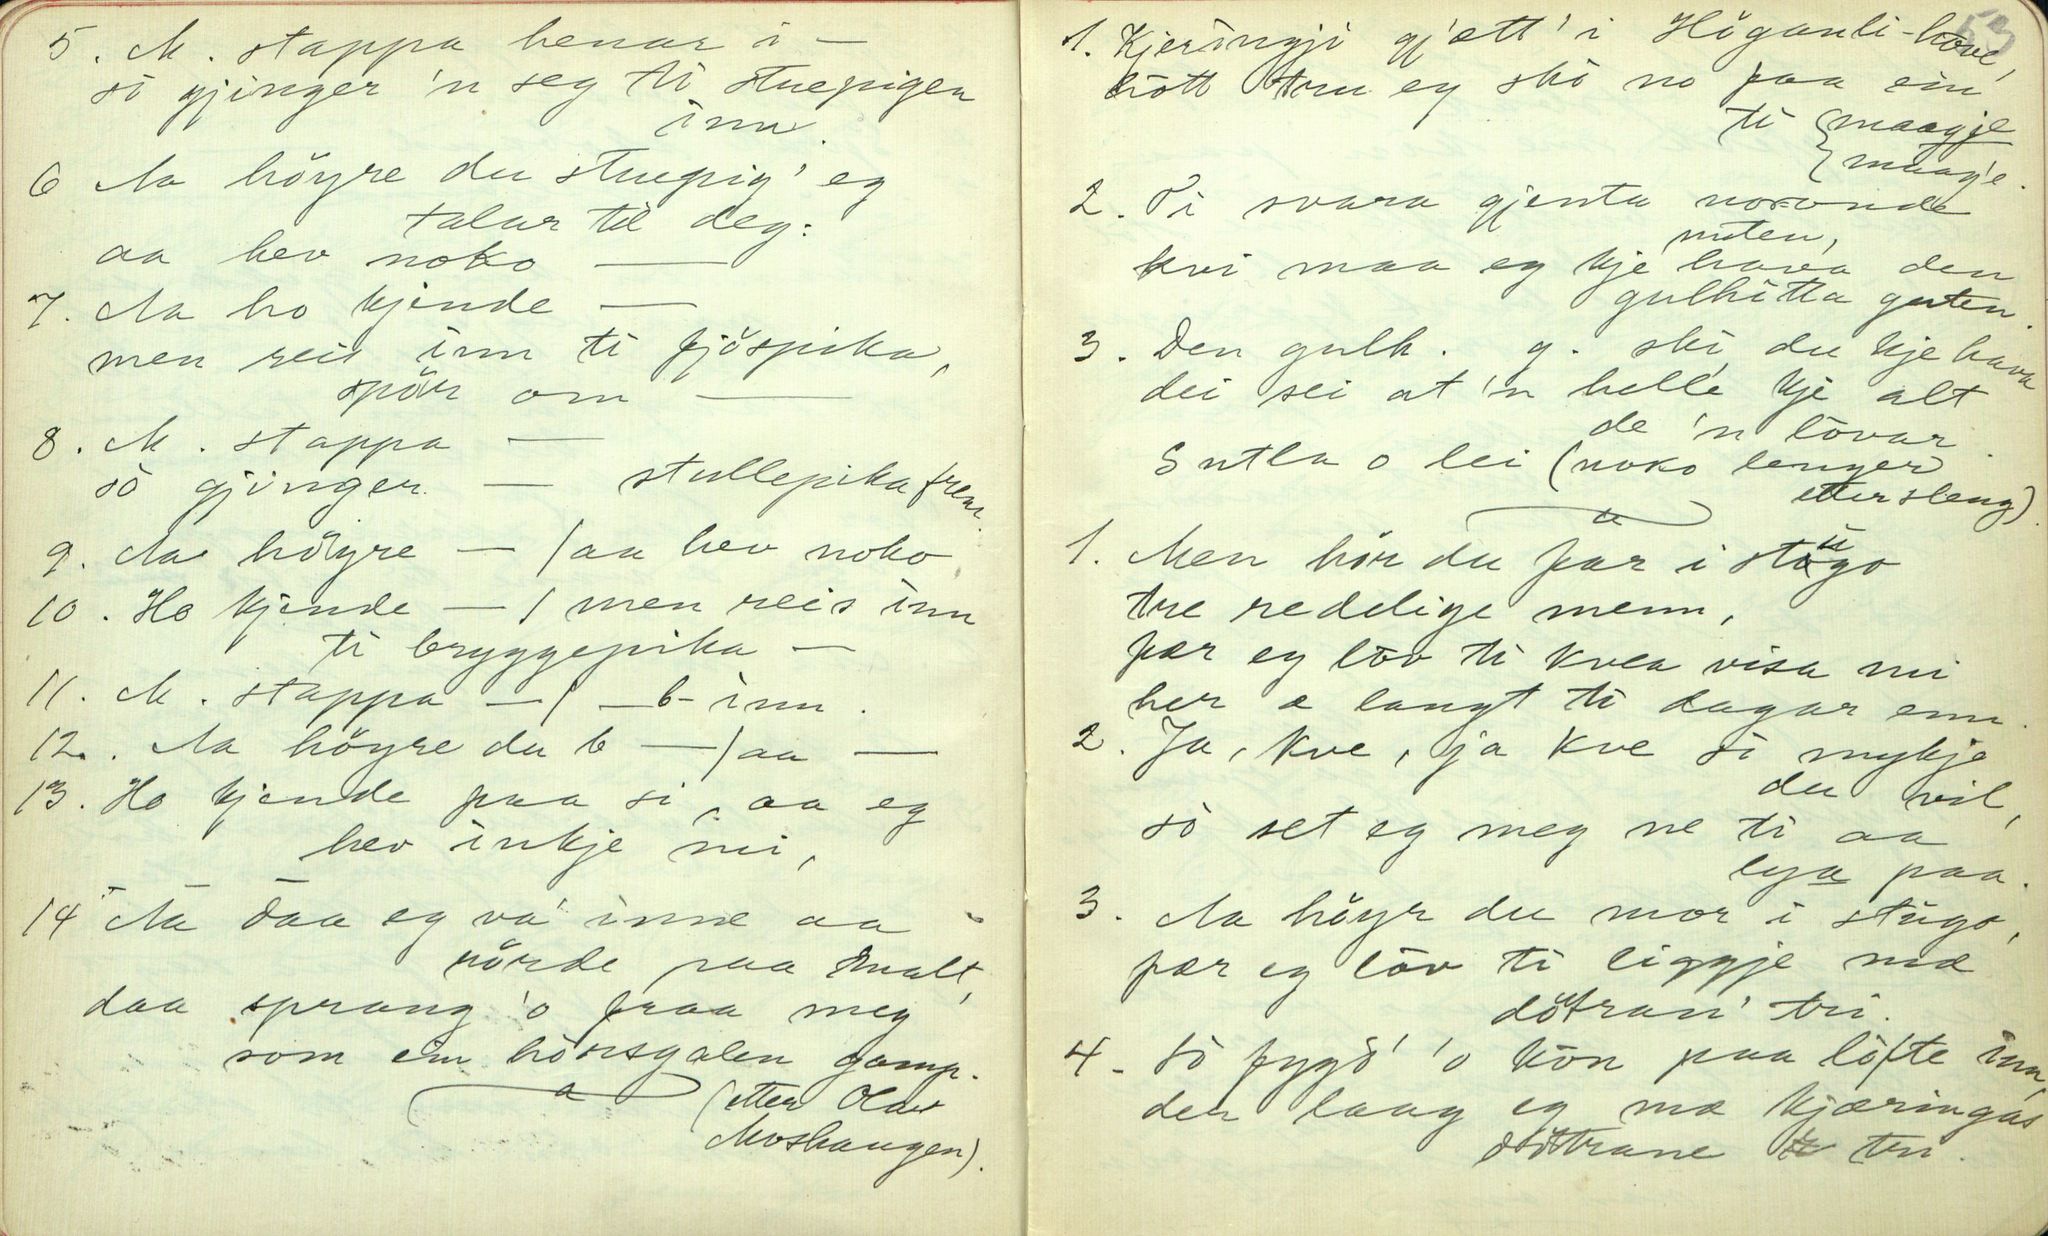 5. M. stappa henar i —
so gjinger 'n seg ti stuepigen
inn.
6 Aa höyre du stuepig' eg
talar til deg:
aa hev noko —
7. Aa ho kjende —
men reis inn ti fjöspika,
spör om —
8. M. stappa —
so gjinger — stullepika fram.
9. Aa höyre — / aa hev noko
10. Ho kjende — / men reis inn
ti bryggepika —
11. M. stappa — / — b- inn.
12. Aa höyre du b — / aa —
13. Ho kjende paa si, aa eg
hev inkje mi,
14 Aa daa eg va' inne aa
rörde paa malt,
daa sprang 'o fraa meg
som ein hörsgalen gamp.
(etter Olav
Moshaugen).
53
1. Kjeringji gjett' i Höganli-hove,
hott tru eg ski no faa ein
ti {maagje
{maag'e.
2. Ti svara gjenta norunde
nuten,
kvi maa eg kje hava den
gulhitta guten.
3. Den gulh. g. ski du kje hava
dei sei at 'n helle kje alt
de 'n lovar.
Sutla o lei (noko lenger
ettersleng).
1. Men hör du far i stugo
tre redelige menn,
fær eg lov ti kvea visa mi
her æ langt ti dagar enn.
2. Ja, kve, ja kve so mykje
du vil,
so set eg meg ne ti aa
lya paa.
3. Aa höyr du mor i stugo,
fær eg lov ti liggje mæ
döttran' tri.
4. So fygd' 'o kon paa löfte inn,
der laag eg mæ kjæringas
döttrane tri.